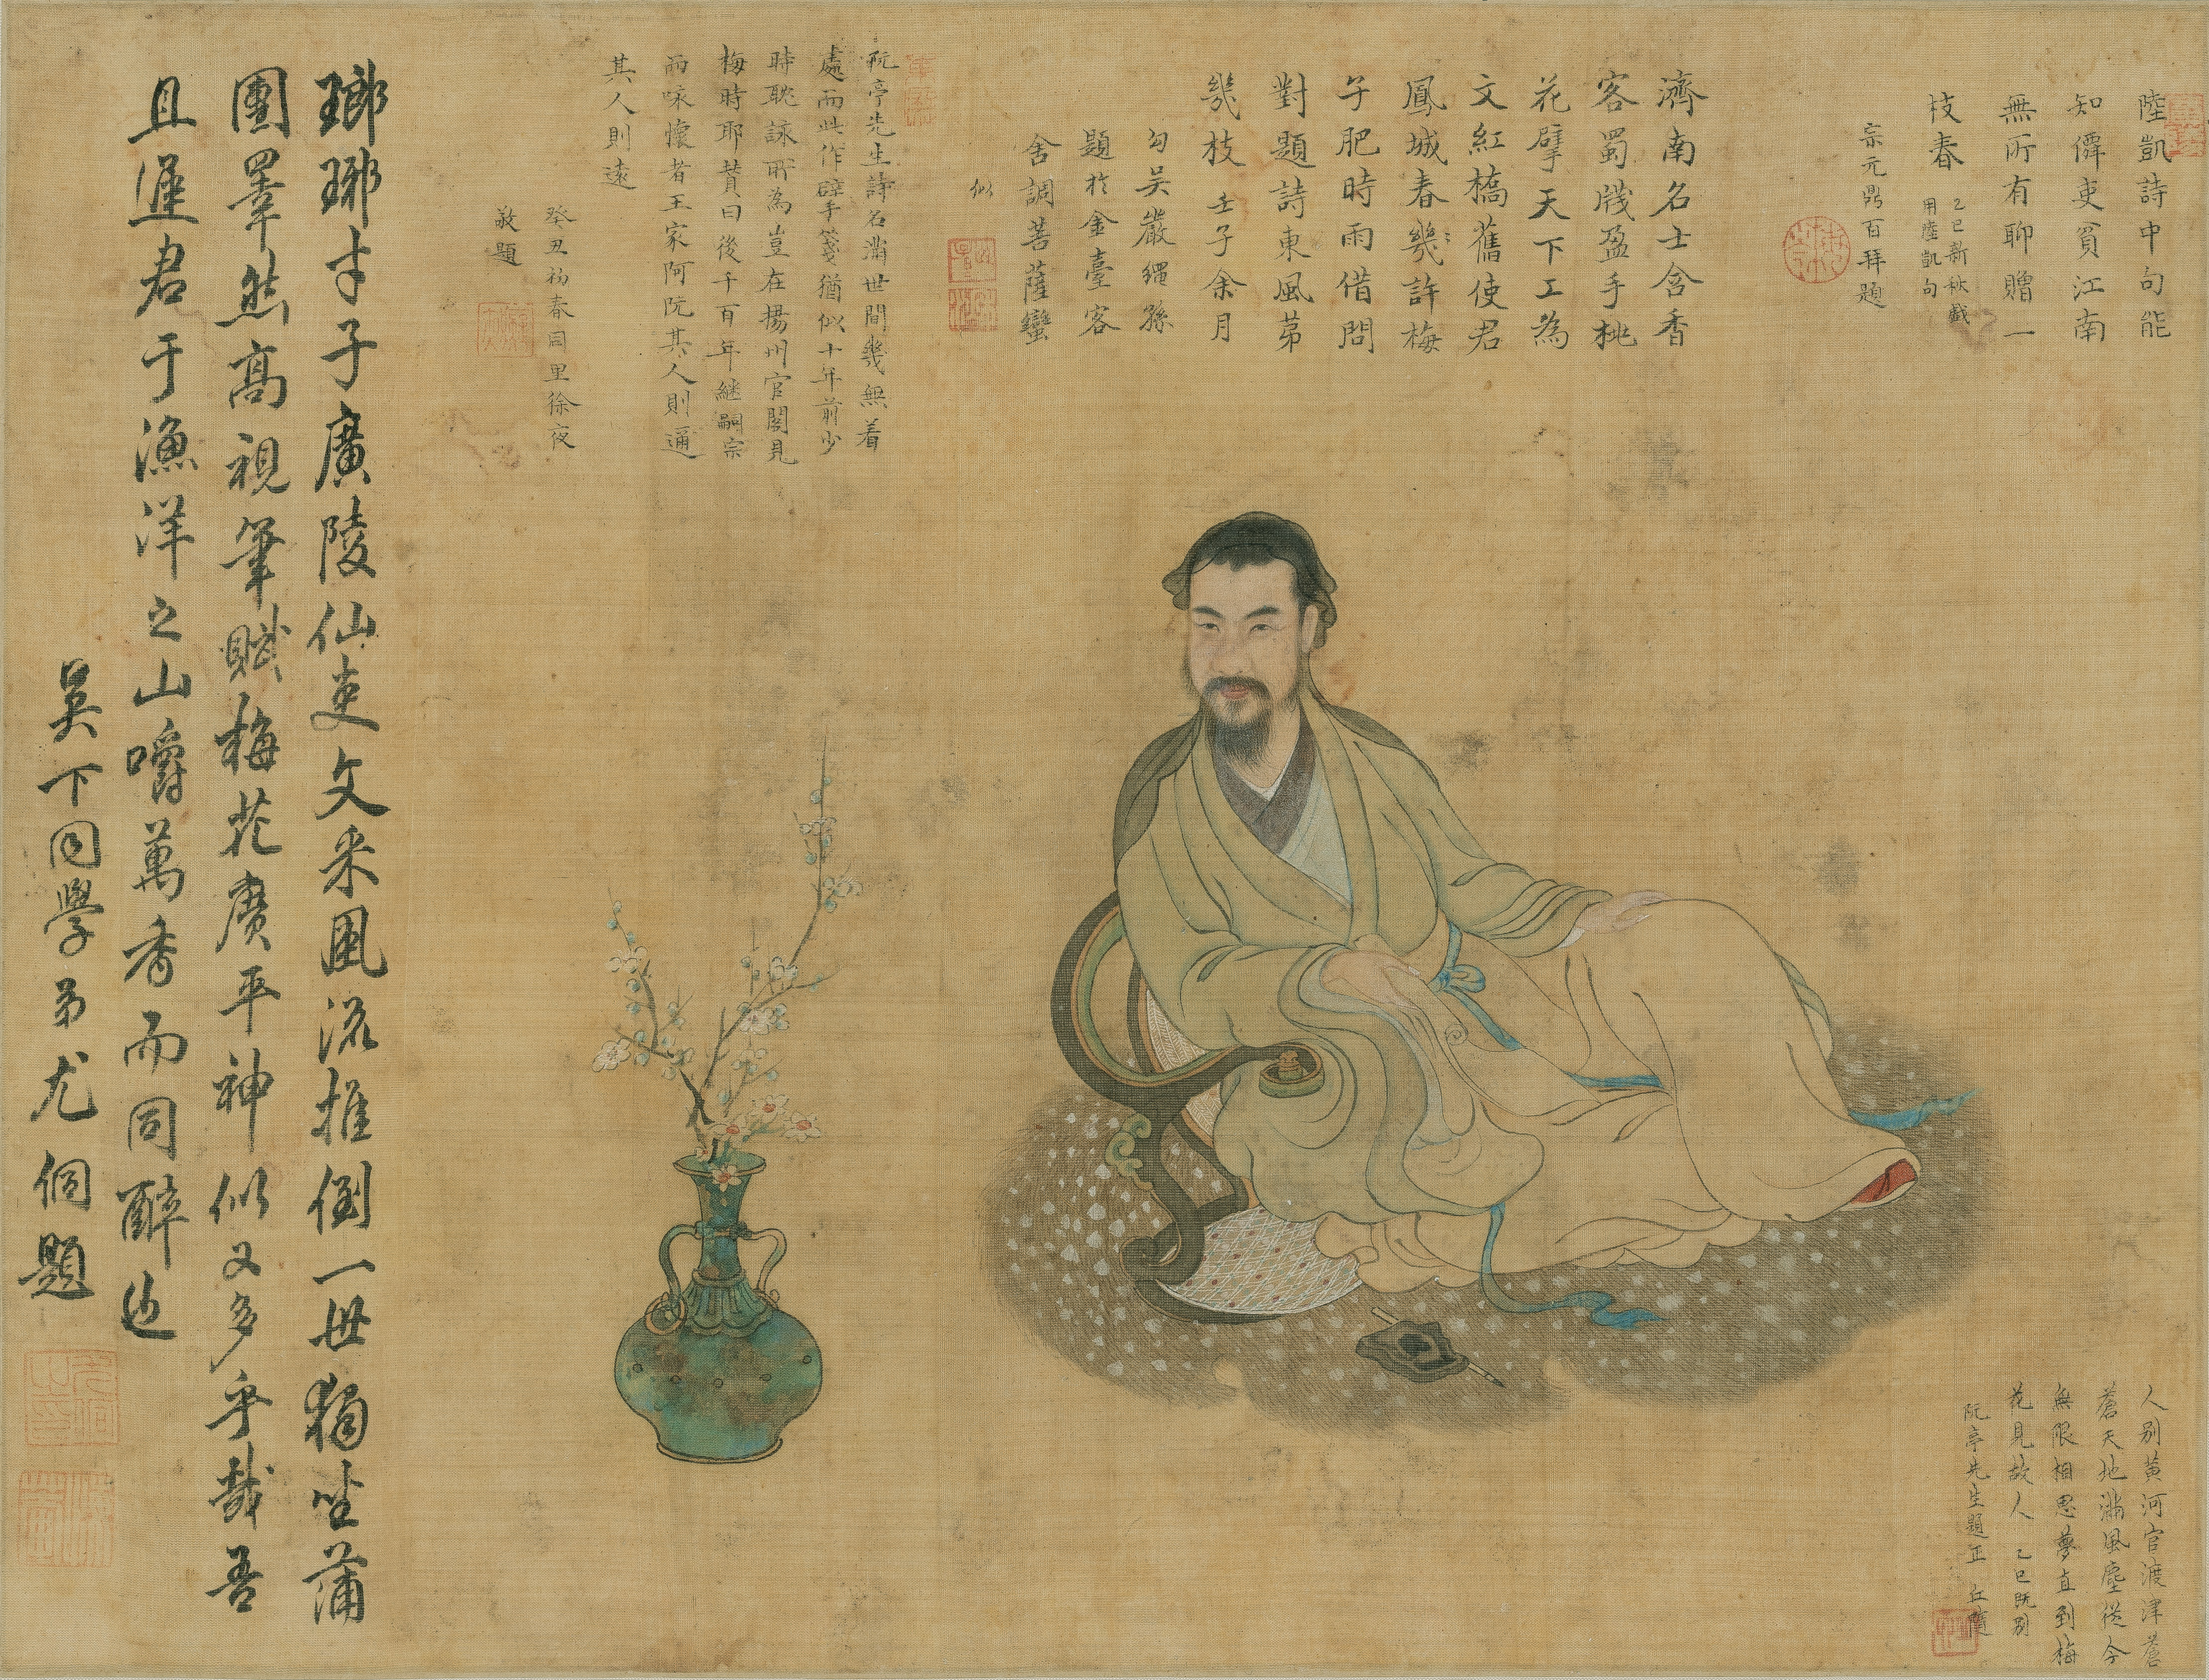 陸凱詩中句能
知僻吏貧江南
無所有聊贈一
枝春
乙巳新秋戲
用陸凱句
宗元鼎百拜題
濟南名士含香
客蜀牋盈手桃
花擘天下工為
文紅橋舊使君
鳳城春幾許梅
子肥時雨借問
對題詩東風第
幾枝 壬子余月
勾吳嚴繩孫
題於金臺客
舍調菩薩蠻
似
阮亭先生詩名滿世間幾無着
處而此作辟手箋猶似十年前少
時耽詠所為豈在揚州官閣見
梅時耶贊曰後千百年繼嗣宗
而咏懷者王家阿阮其人則邇
其人則遠
癸丑初春同里徐夜
敬題
瑯琊才子廣陵仙吏文采風流推倒一世獨坐蒲
團睪然高視筆賦梅花廣平神似又多乎哉吾
且逢君于漁洋之山嚼萬香而同醉也
吳下同學弟尤侗題
人別黃河官渡津蒼
蒼天地滿風塵從今
無限相思夢直到梅
花見故人 乙巳既別
阮亭先生題正